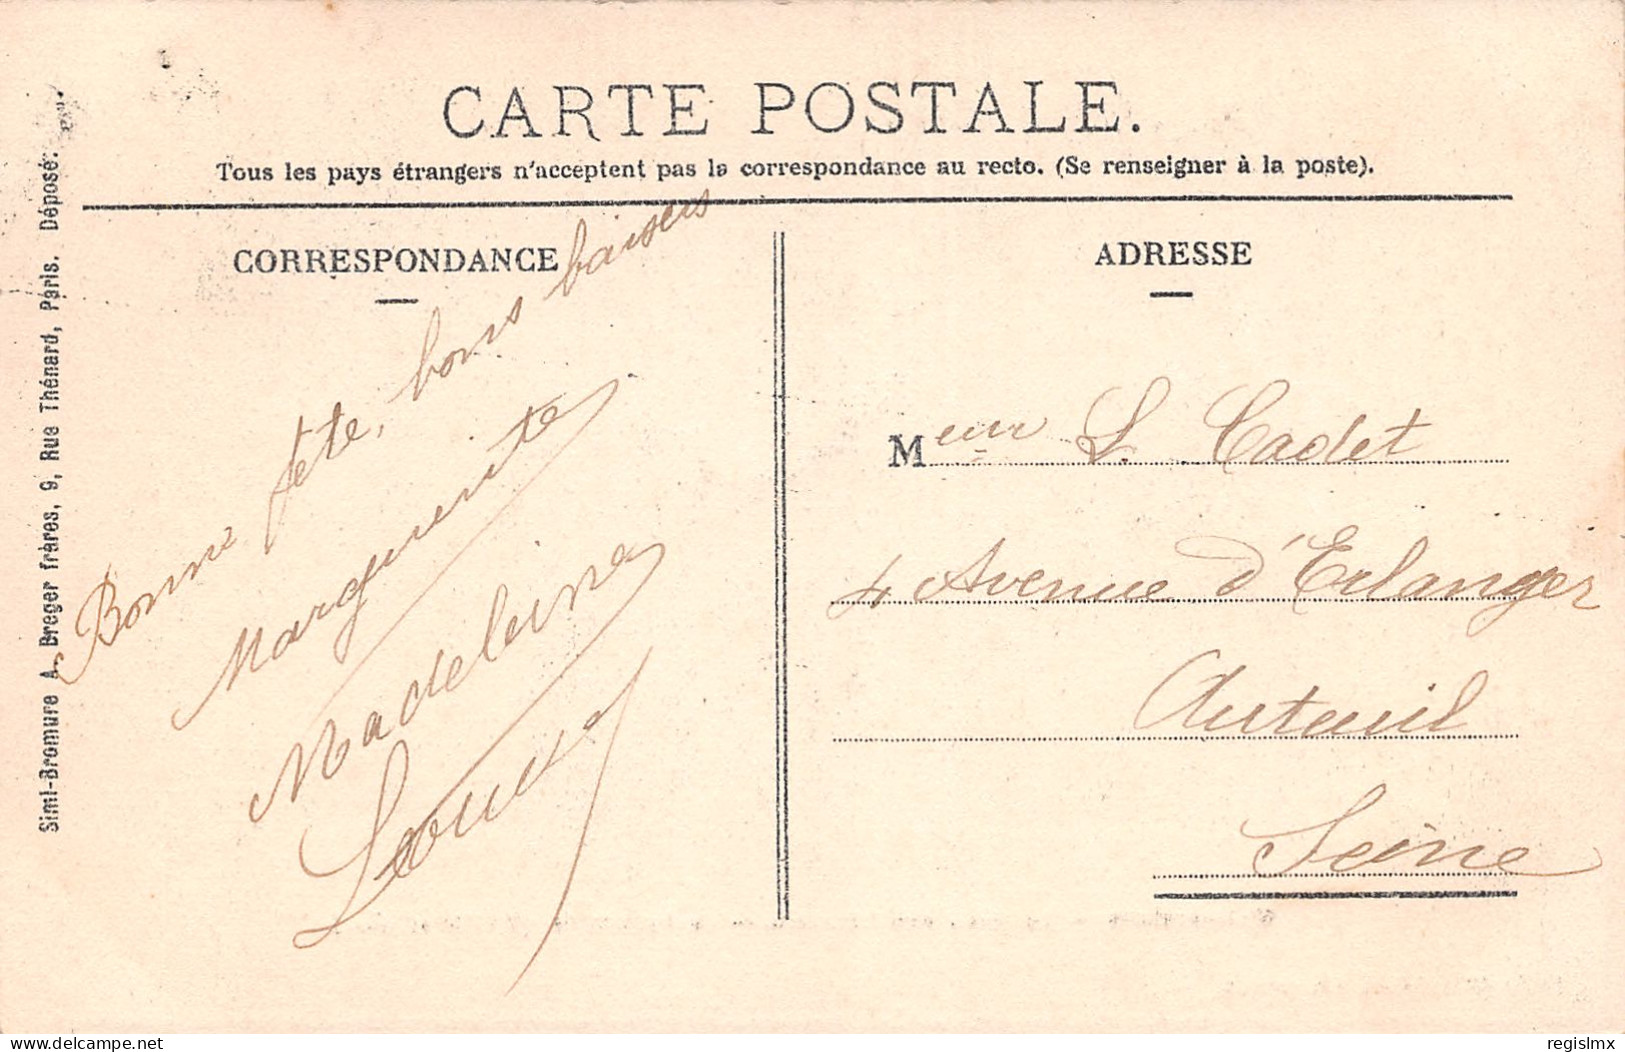 CARTE POSTALE.
Tous les pays étrangers n'acceptent pas la correspondance au recto. (Se renseigner à la poste).
Simi-Bromure A. Breger frères, 9, Rue Thénard, Paris. Déposé.
CORRESPONDANCE
Bonne fête, bons baisers
Marguerite
Madeleine
Louise
ADRESSE
Meur L. Cadet
4 Avenue d'Erlanger
Auteuil
Seine
delcampe.net
regislmx